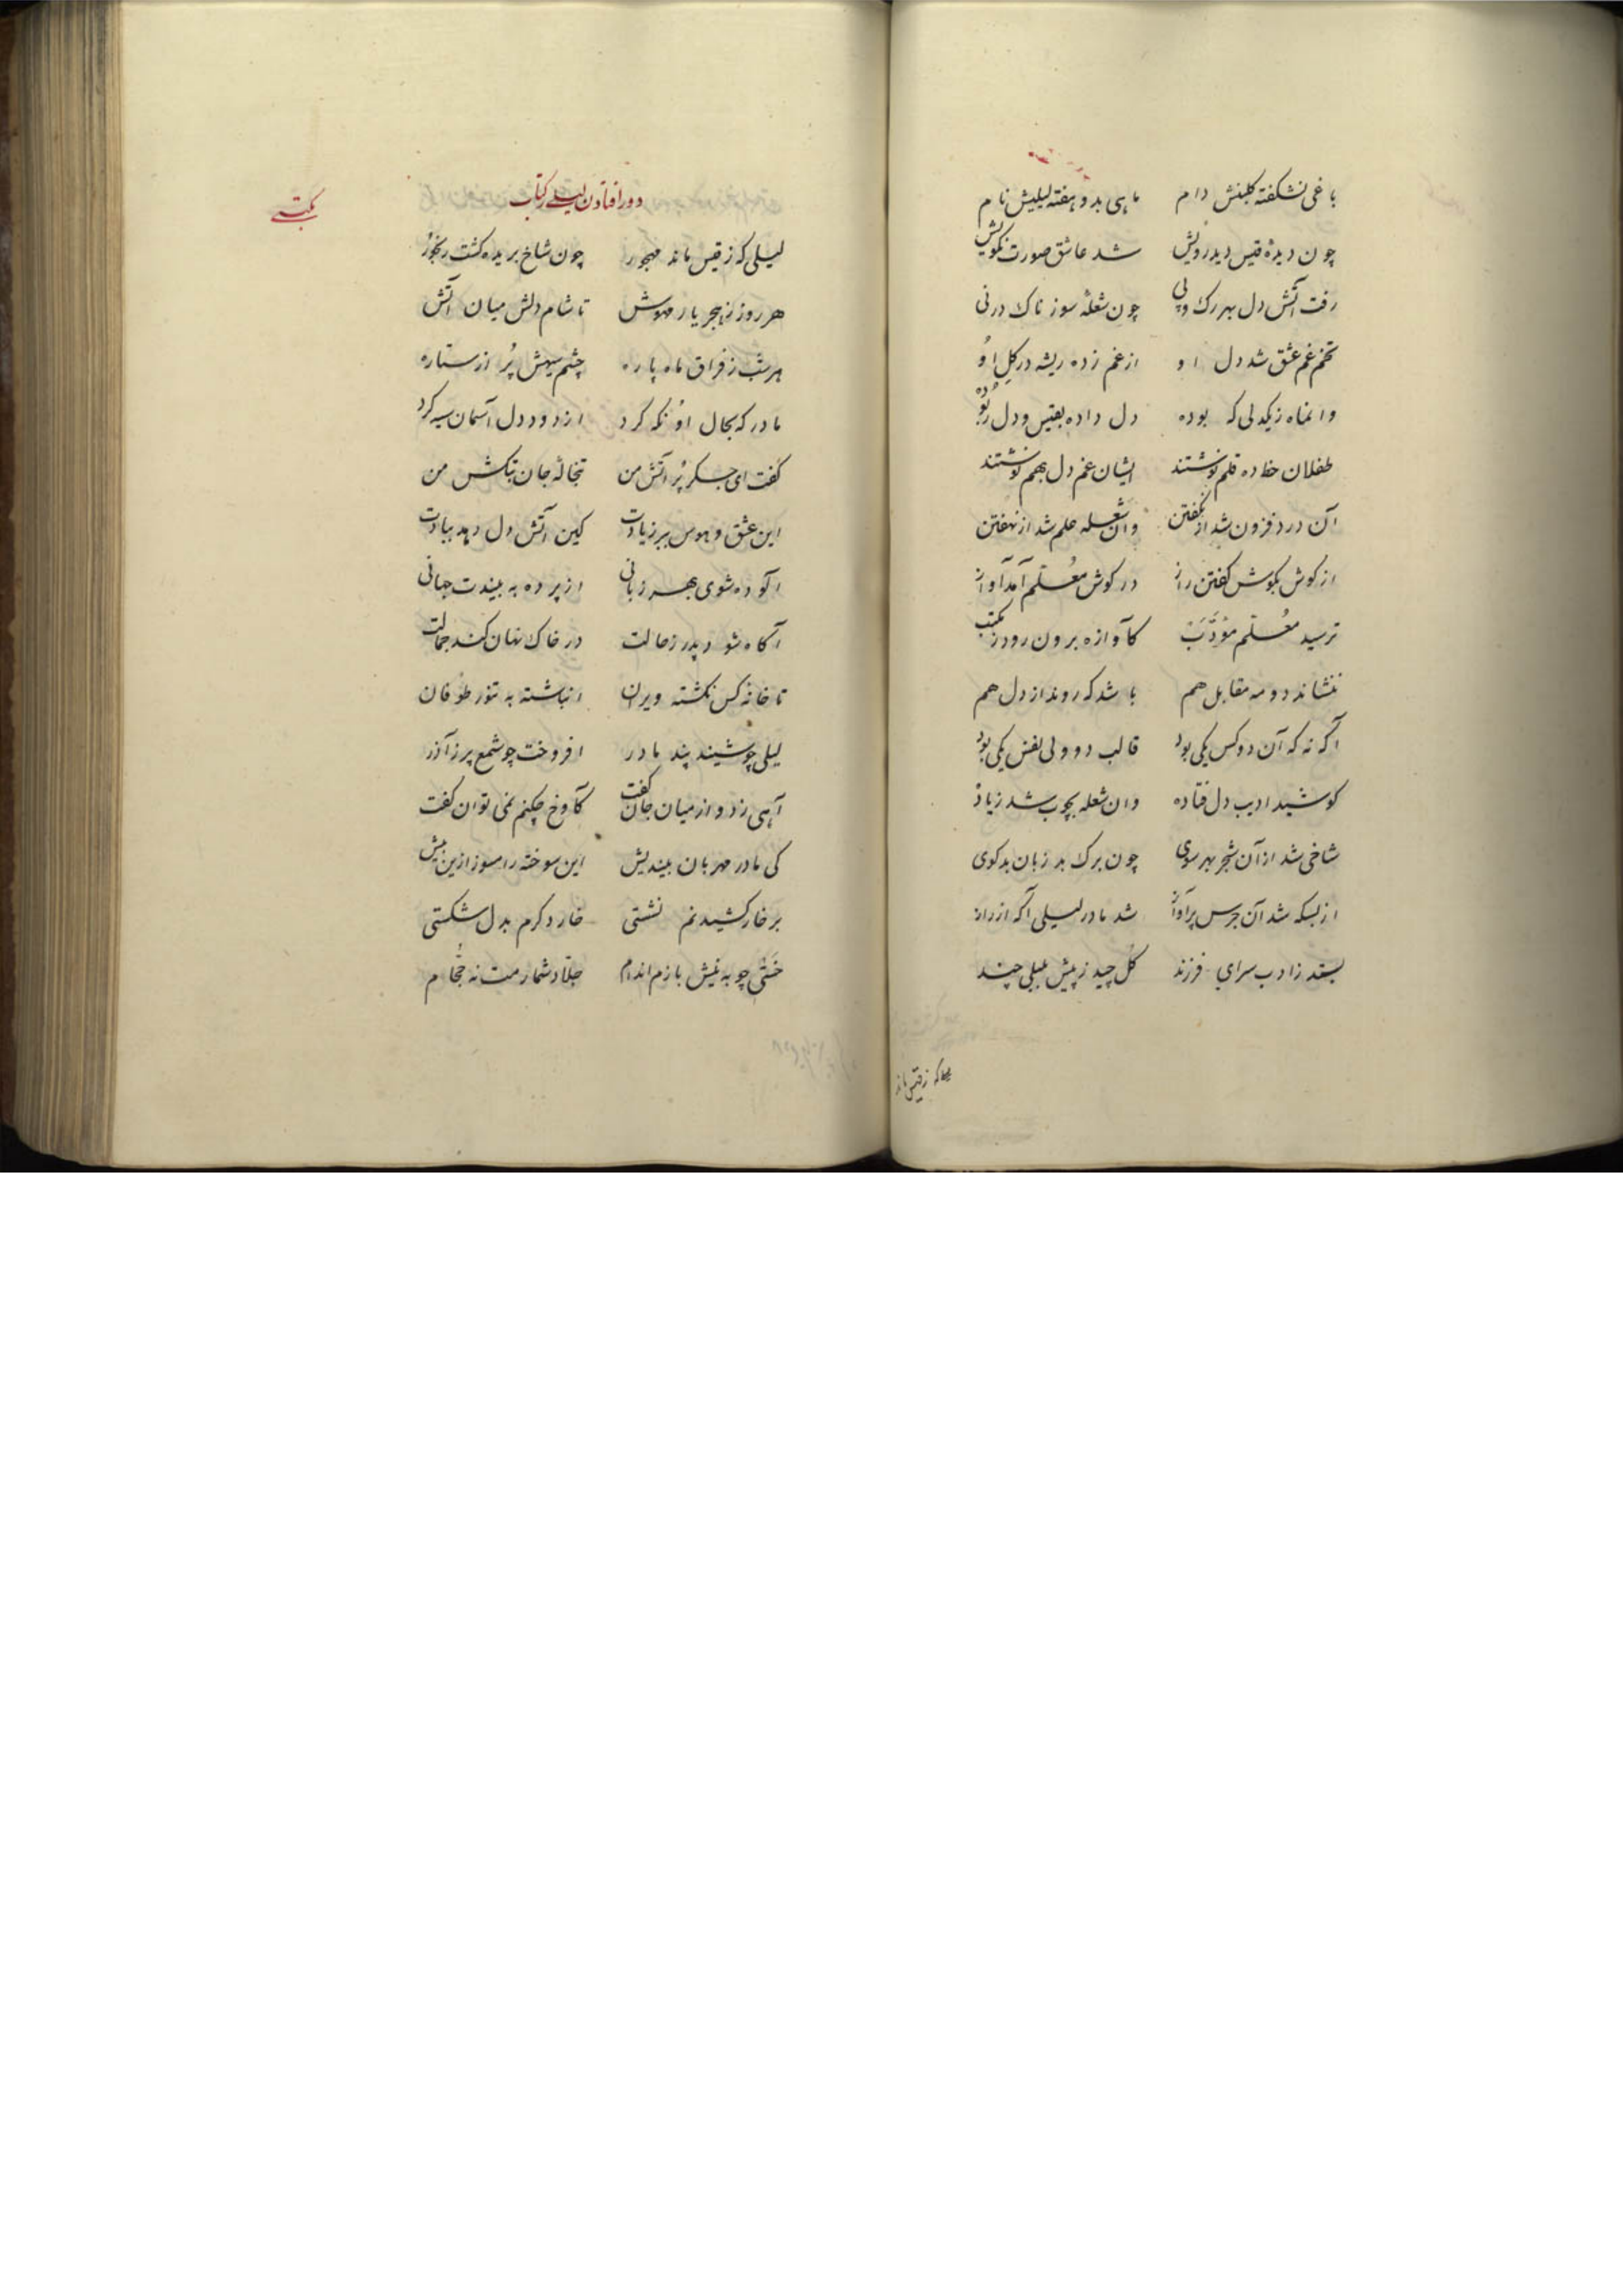 باغی نشکفته گلبنش دام ماهی بدو هفته لیلیش نام
چون دیدهٔ قیس دید رویش شد عاشق صورت نکویش
رفت آتش دل بهر رک وپی چون شعلهٔ سوزناک در نی
تخم غم عشق شد دل او از غم زده ریشه در کلِ اوُ
وانماه زیکدلی که بوده دل داده بقیس و دل ربوُده
طفلان خط ده قلم نوشتند ایشان غم دل بهم نوشتند
آن درد فزون شد از نکفتن وان شعله علم شد از نهفتن
از کوش بکوش کفتن راز در کوش مُعلّم آمد آواز
ترسید مُعلّم مؤدَّبْ کآوازه برون رود ز مکتب
ننشاند دو مه مقابل هم باشد که روند از دل هم
آکه نه که آن دو کس یکی بود قالب دو ولی نفس یکی بود
کوشید ادیب دل فتاده وان شعله بچوب شد زیاده
شاخی شد از آن شجر بهر سوی چون برک بد زبان بدکوی
از بسکه شد آن جرس پر آواز شد مادر لیلی آکه از راز
بستد ز ادب سرای فرزند کُل چید ز پیش بلبلی چند
که ز قیس ماند
دور افتادن لیلی ز کتاب
لیلی که ز قیس ماند مهجور چون شاخ بریده کشت رنجوُر
هر روز ز هجر یار مهوش تا شام دلش میان آتش
هر شب ز فراق ماه پاره چشم سیهش پُر از ستاره
مادر که بحال اوُ نکه کرد از دود دل آسمان سیه کرد
کفت ای جکر پُر آتش من تبخالهٔ جان تبکش من
این عشق و هوس ببر ز یادت کین آتش دل دهد ببادت
آلوده شوی بهر زبانی از پرده به بیندت جهانی
آکاه شود پدر ز حالت در خاک نهان کند جمالت
تا خانه کس نکشته ویران انباشته به تنور طوُفان
لیلی چو شنید پند مادر افروخت چو شمع پر ز آذر
آهی زد و از میان جان کفت کآوخ چکنم نمی توان کفت
کی مادر مهربان بیندیش این سوخته را مسوز ازین بیش
بر خار کشیدنم نشستی خار دکرم بدل شکستی
خَستی چو به نیش بازم اندام جلّاد شمارمت نه حجّام